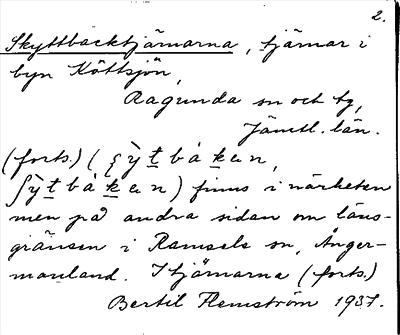 2.
Skyttbacktjärnarna, tjärnar i
byn Köttsjön,
Ragunda sn och tg,
Jämtl. län.
(forts.) (ʃỳtbàkan,
ʃỳtbàkan) finns i närheten
men på andra sidan om läns-
gränsen i Ramsele sn, Ånger-
manland. I tjärnarna (forts.)
Bertil Flemström 1937.